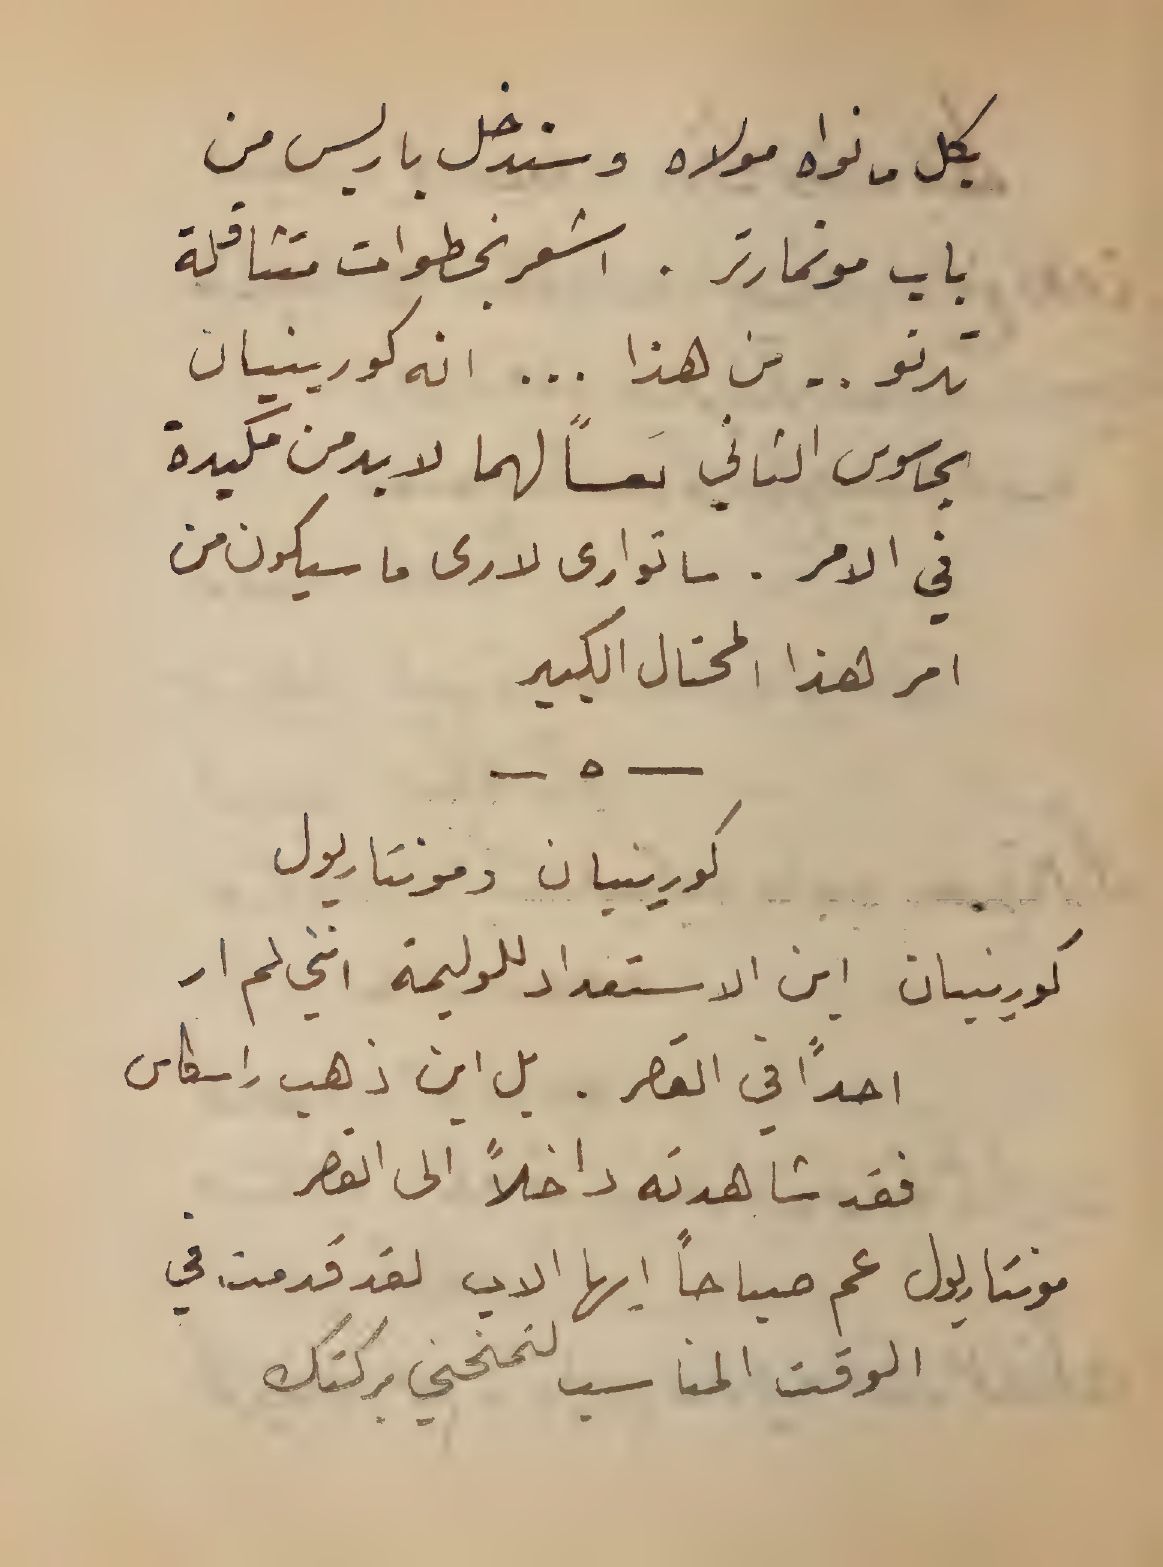 بكل ما نواه مولاه وستدخل باريس من
باب مونمارتر . اشعر بخطوات متثاقلة
تدنو .. من هذا ... انه كورينيان
الجاسوس الثاني تَعساً لهما لا بد من مكيدة
في الامر . ساتوارى لارى ما سيكون من
امر هذا المحتال الكبير
— ٥ —
كورينيان ومونتاريول
كورينيان اين الاستعداد للوليمة انني لم ار
احداً في القصر . بل اين ذهب راسكاس
فقد شاهدته داخلاً الى القصر
مونتاريول عم صباحاً ايها الاب لقد قدمت في
الوقت المناسب لتمنحني بركتك